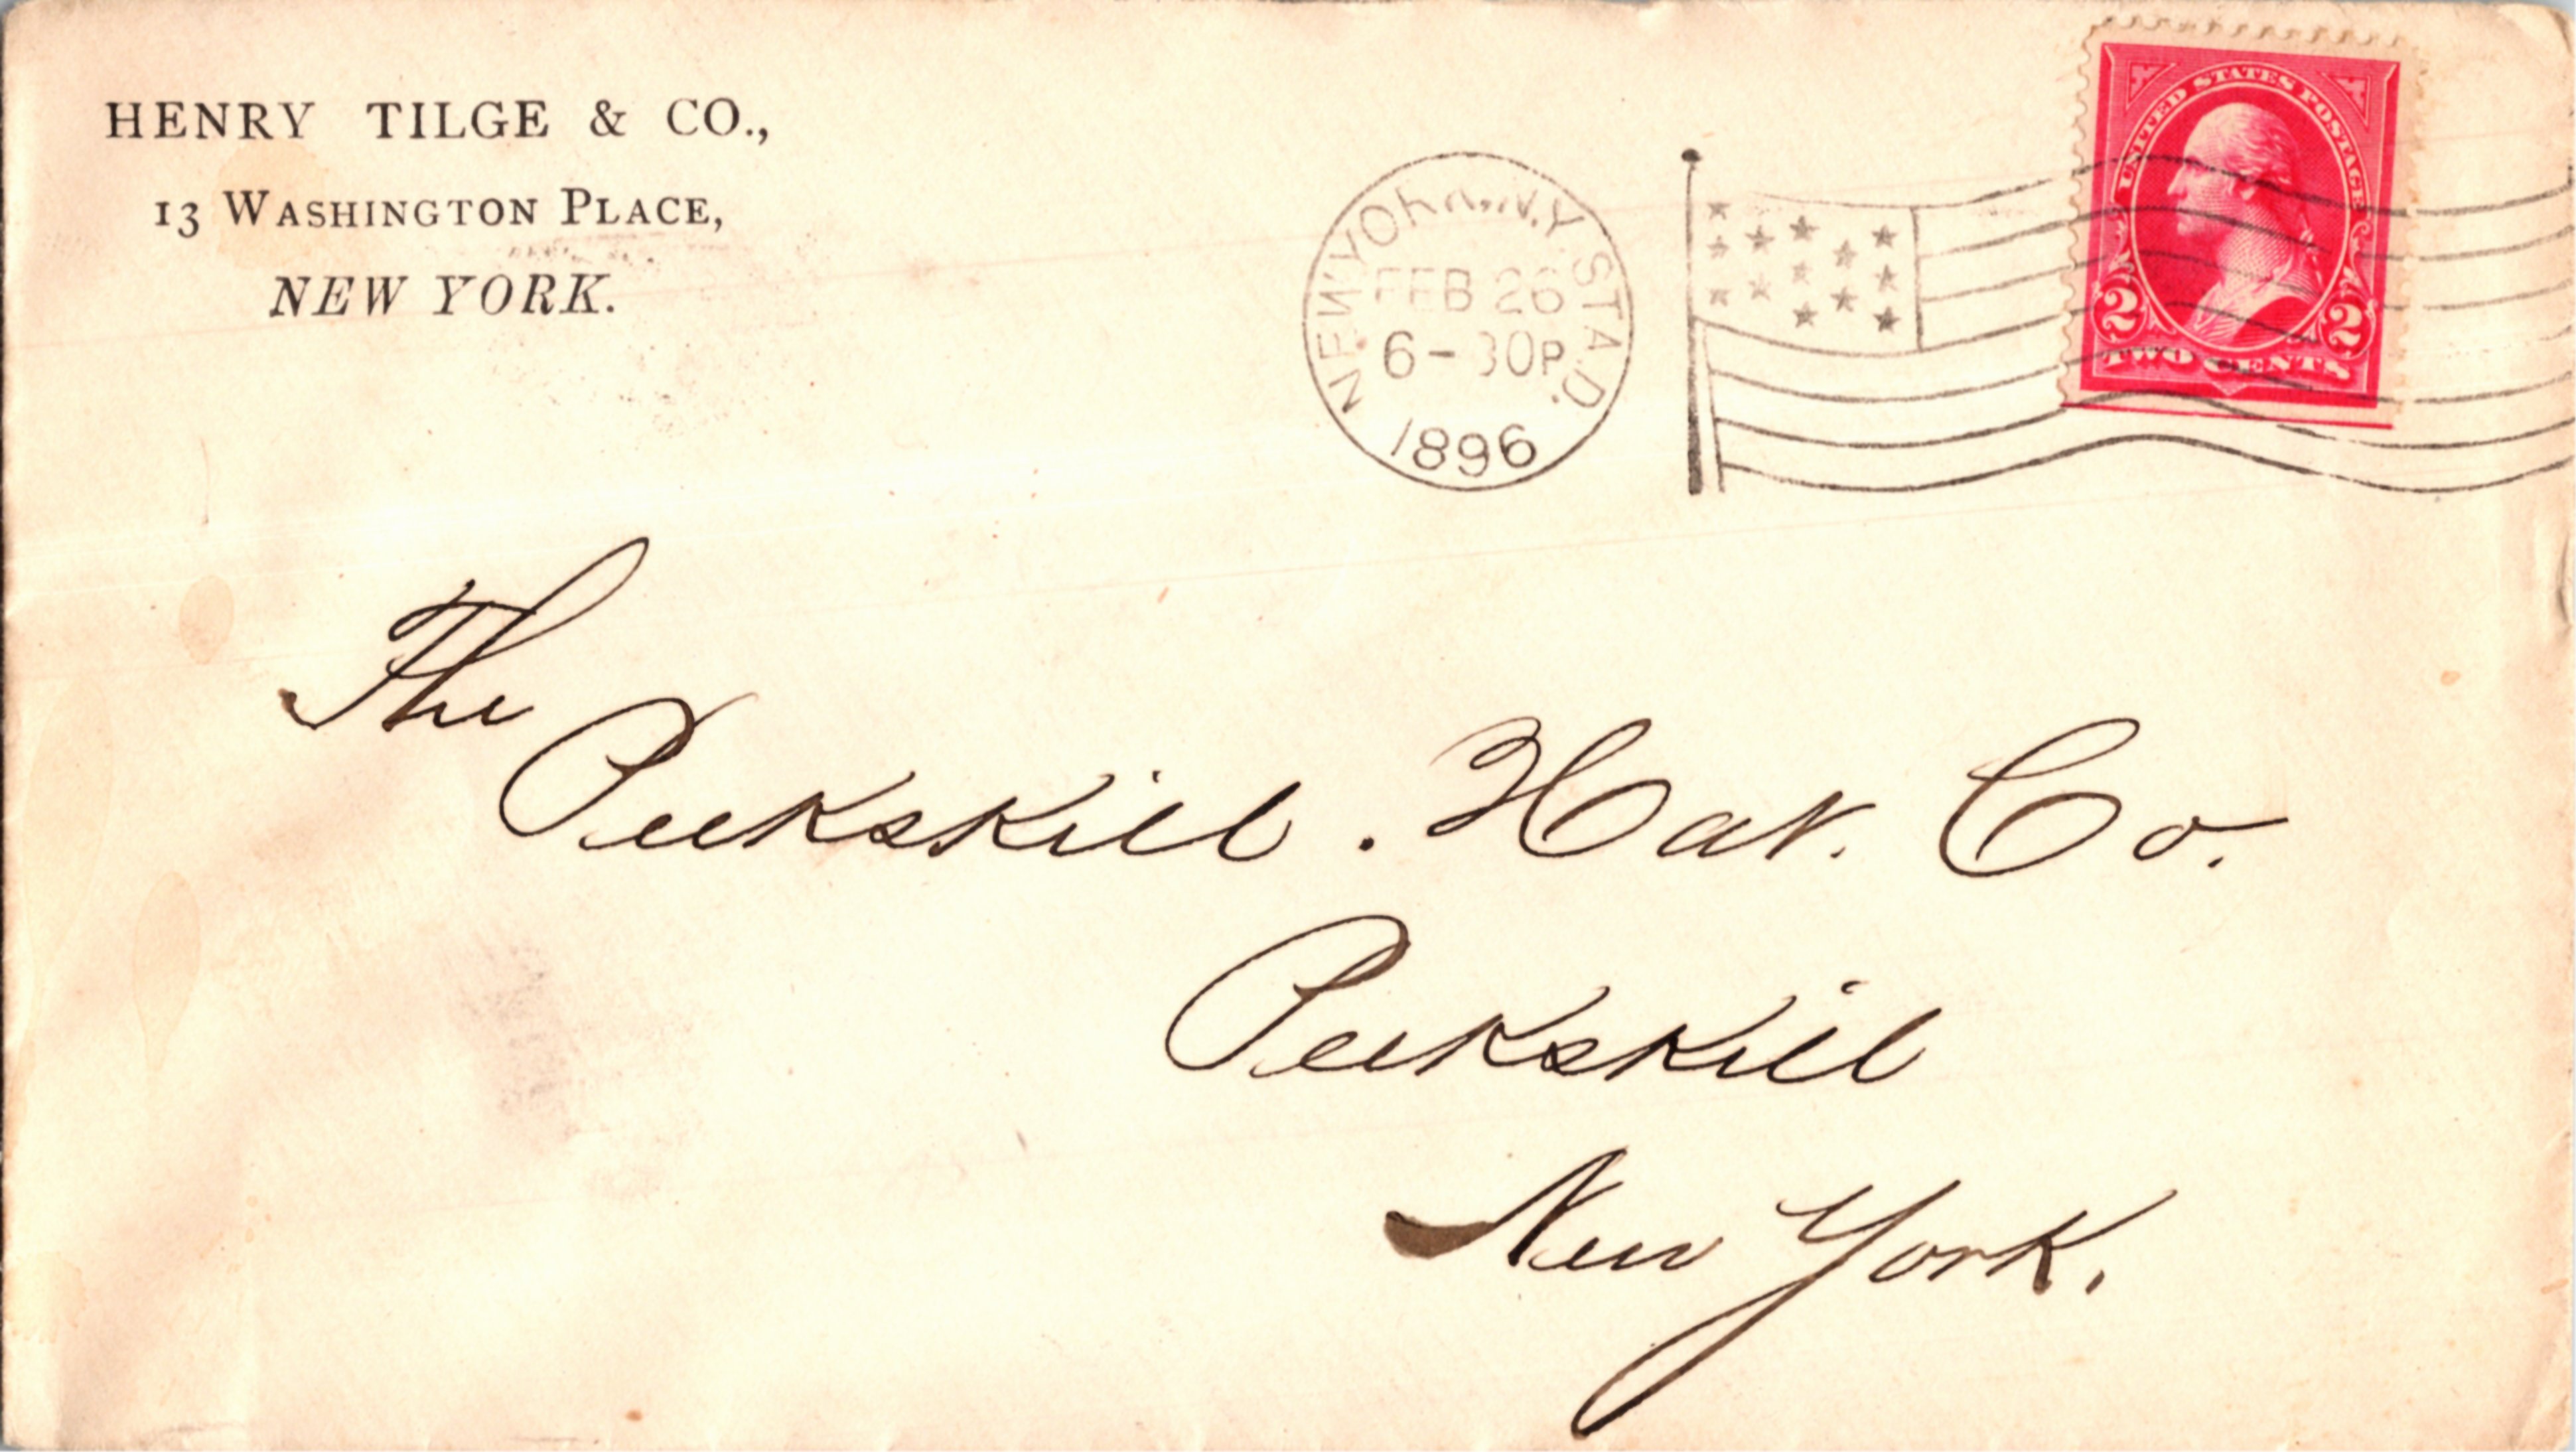 HENRY TILGE & CO.,
13 WASHINGTON PLACE,
NEW YORK.
NEW YORK, N.Y. STA. D.
FEB 26
6-30P
1896
UNITED STATES POSTAGE
2 2
TWO CENTS
The
Peekskill. Hat. Co.
Peekskill
New York.